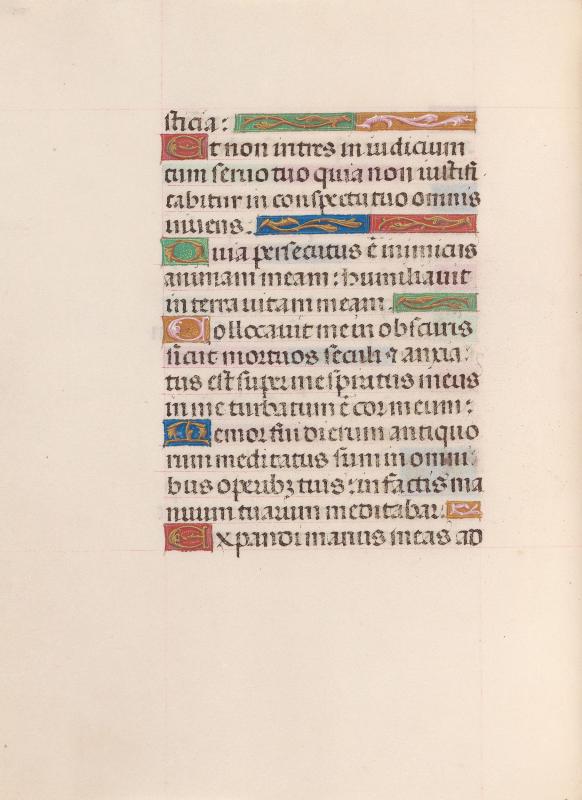 sticia:
Et non intres in iudicium
cum seruo tuo quia non iustifi
cabitur in conspectu tuo omnis
viuens.
Quia persecutus ē inimicus
animam meam: humiliauit
in terra uitam meam.
Collocauit me in obscuris
sicut mortuos seculi ⁊ anxia
tus est super me spiritus meus
in me turbatum ē cor meum:
Memor fui dierum antiquo
rum meditatus sum in omni
bus operibꝫ tuis: in factis ma
nuum tuarum meditabar.
Expandi manus meas ad